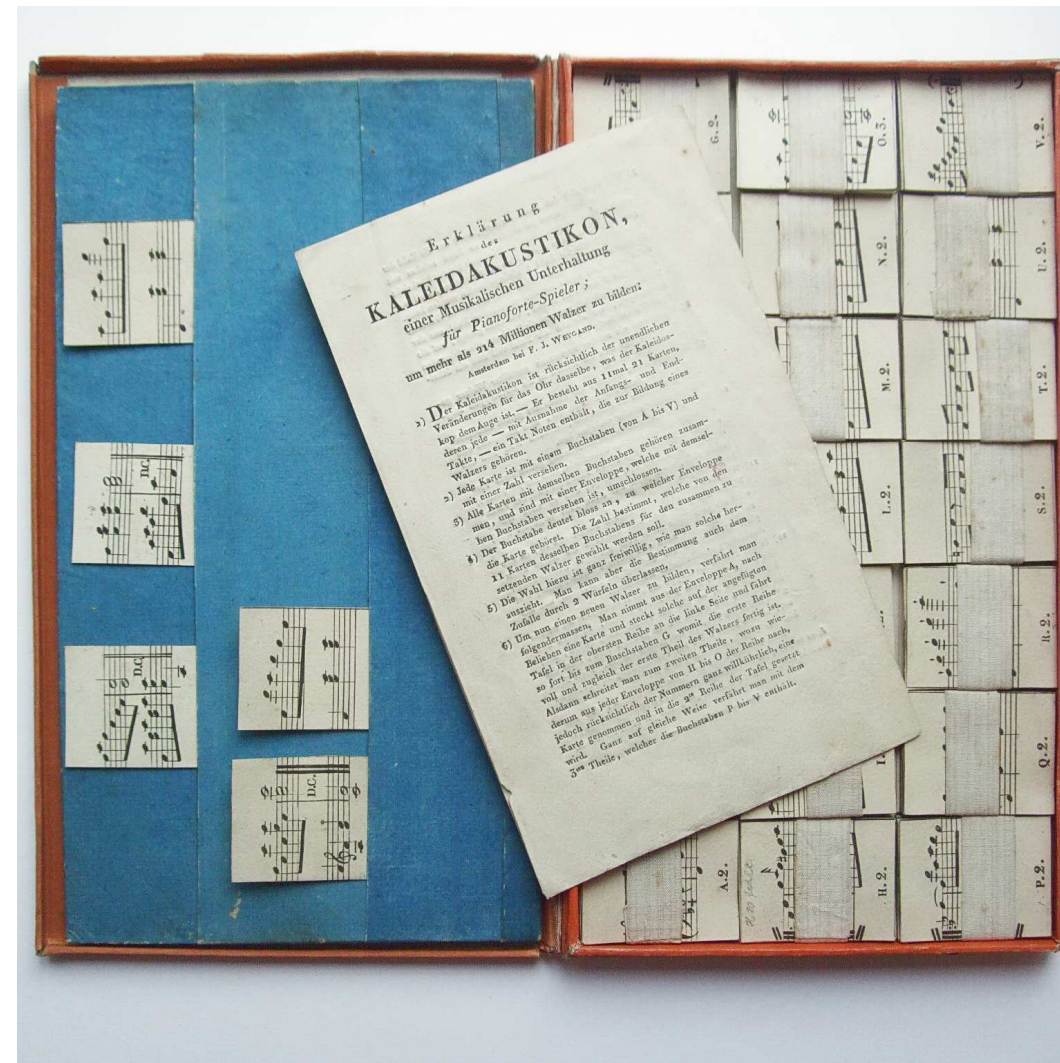 Erklärung
des
KALEIDAKUSTIKON,
einer Musikalischen Unterhaltung
für Pianoforte-Spieler;
um mehr als 214 Millionen Walzer zu bilden:
Amsterdam bei F. J. WEYGAND.
1) Der Kaleidakustikon ist rücksichtlich der unendlichen
Veränderungen für das Ohr dasselbe, was der Kaleidos-
kop dem Auge ist. — Er besteht aus 11mal 21 Karten,
deren jede — mit Ausnahme der Anfangs- und End-
Takte, — ein Takt Noten enthält, die zur Bildung eines
Walzers gehören.
2) Jede Karte ist mit einem Buchstaben (von A bis V) und
mit einer Zahl versehen.
3) Alle Karten mit demselben Buchstaben gehören zusam-
men, und sind mit einer Enveloppe, welche mit demsel-
ben Buchstaben versehen ist, umschlossen.
4) Der Buchstabe deutet bloss an, zu welcher Enveloppe
die Karte gehöret. Die Zahl bestimmt, welche von den
11 Karten desselben Buchstabens für den zusammen zu
setzenden Walzer gewählt werden soll.
5) Die Wahl hiezu ist ganz freiwillig, wie man solche her-
auszieht. Man kann aber die Bestimmung auch dem
Zufalle durch 2 Würfeln überlassen.
6) Um nun einen neuen Walzer zu bilden, verfährt man
folgendermassen. Man nimmt aus der Enveloppe A, nach
Belieben eine Karte und steckt solche auf der angefügten
Tafel in der obersten Reihe an die linke Seite und fährt
so fort bis zum Buschstaben G womit die erste Reihe
voll und zugleich der erste Theil des Walzers fertig ist.
Alsdann schreitet man zum zweiten Theile, wozu wie-
derum aus jeder Enveloppe von H bis O der Reihe nach,
jedoch rücksichtlich der Nummern ganz willkührlich, eine
Karte genommen und in die 2te Reihe der Tafel gesetzt
wird. Ganz auf gleiche Weise verfährt man mit dem
3ten Theile, welcher die Buchstaben P bis V enthält.
D.C.
D.C.
D.C.
G.2.
O.3.
V.2.
N.2.
U.2.
M.2.
T.2.
L.2.
S.2.
R.2.
Q.2.
A.2.
H.2.
P.2.